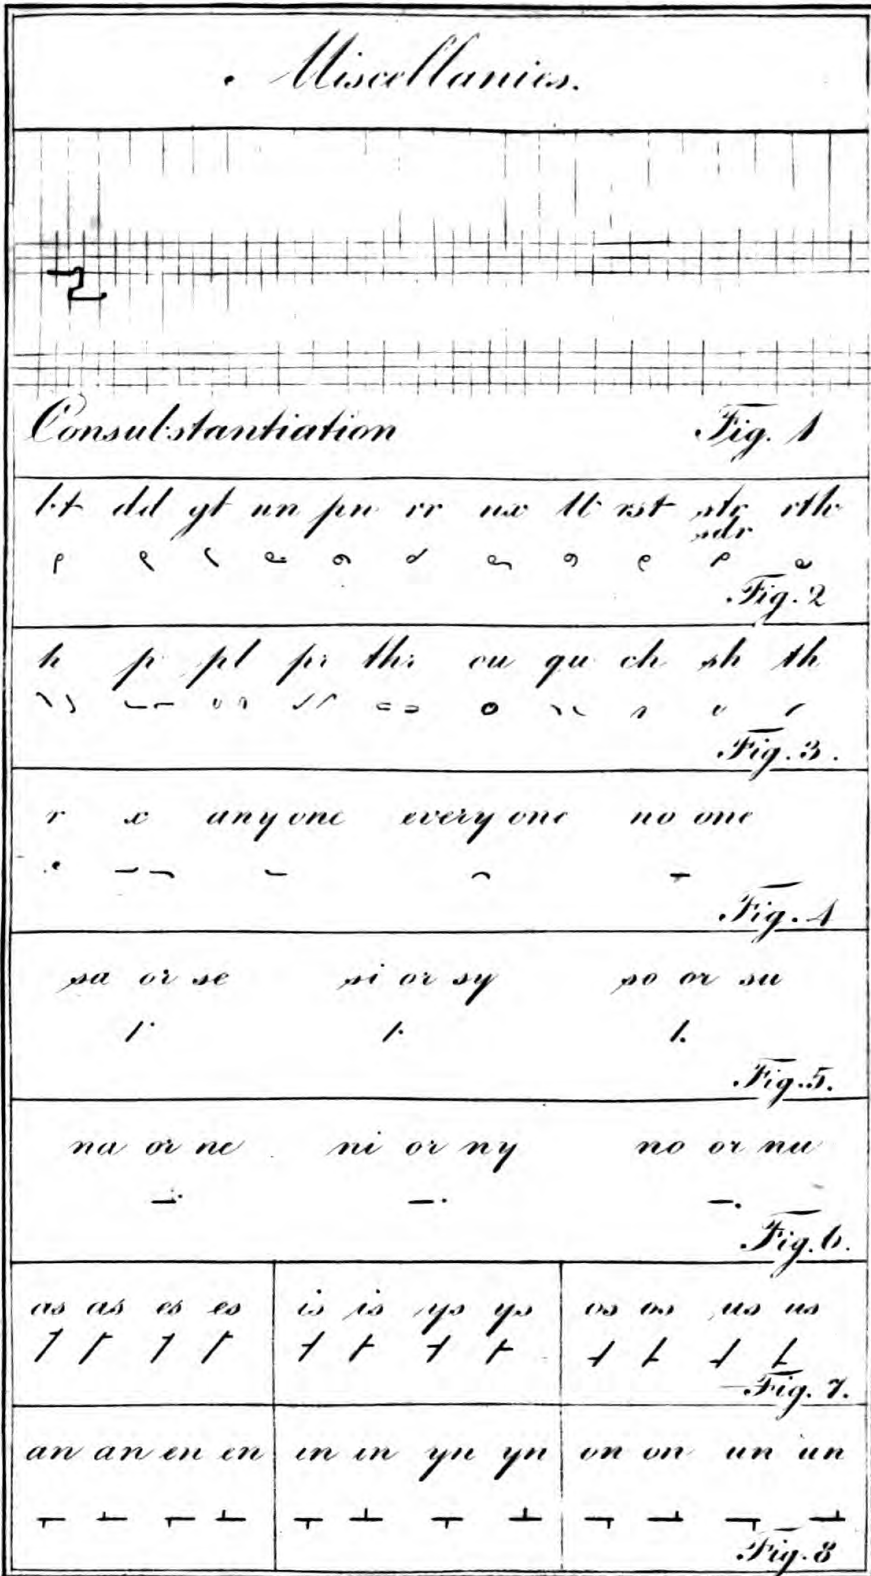 Miscellanies.
Consubstantiation Fig. 1
bt dd gt un pn rr ux tt rst str rth
sdr
Fig. 2
h p pl pr thr ou qu ch sh th
Fig. 3.
r x any one every one no one
Fig. 4
sa or se si or sy so or su
Fig. 5.
na or ne ni or ny no or nu
Fig. 6.
as as es es is is ys ys os os us us
Fig. 7.
an an en en in in yn yn on on un un
Fig. 8